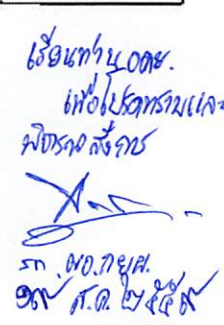 เรียนท่าน อคย.
เพื่อโปรดทราบและ
พิจารณาสั่งการ
รก ผอ.กยผ.
๑๙ ส.ค. ๒๕๕๙